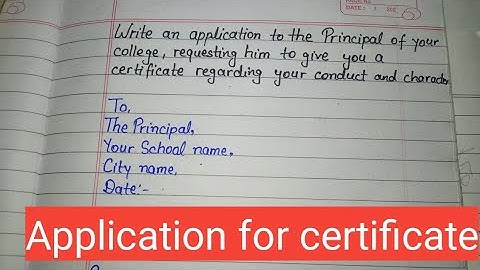 DATE: / / 202
Write an application to the Principal of your
college, requesting him to give you a
certificate regarding your conduct and character
To,
The Principal,
Your School name,
City name,
Date:-
Application for certificate